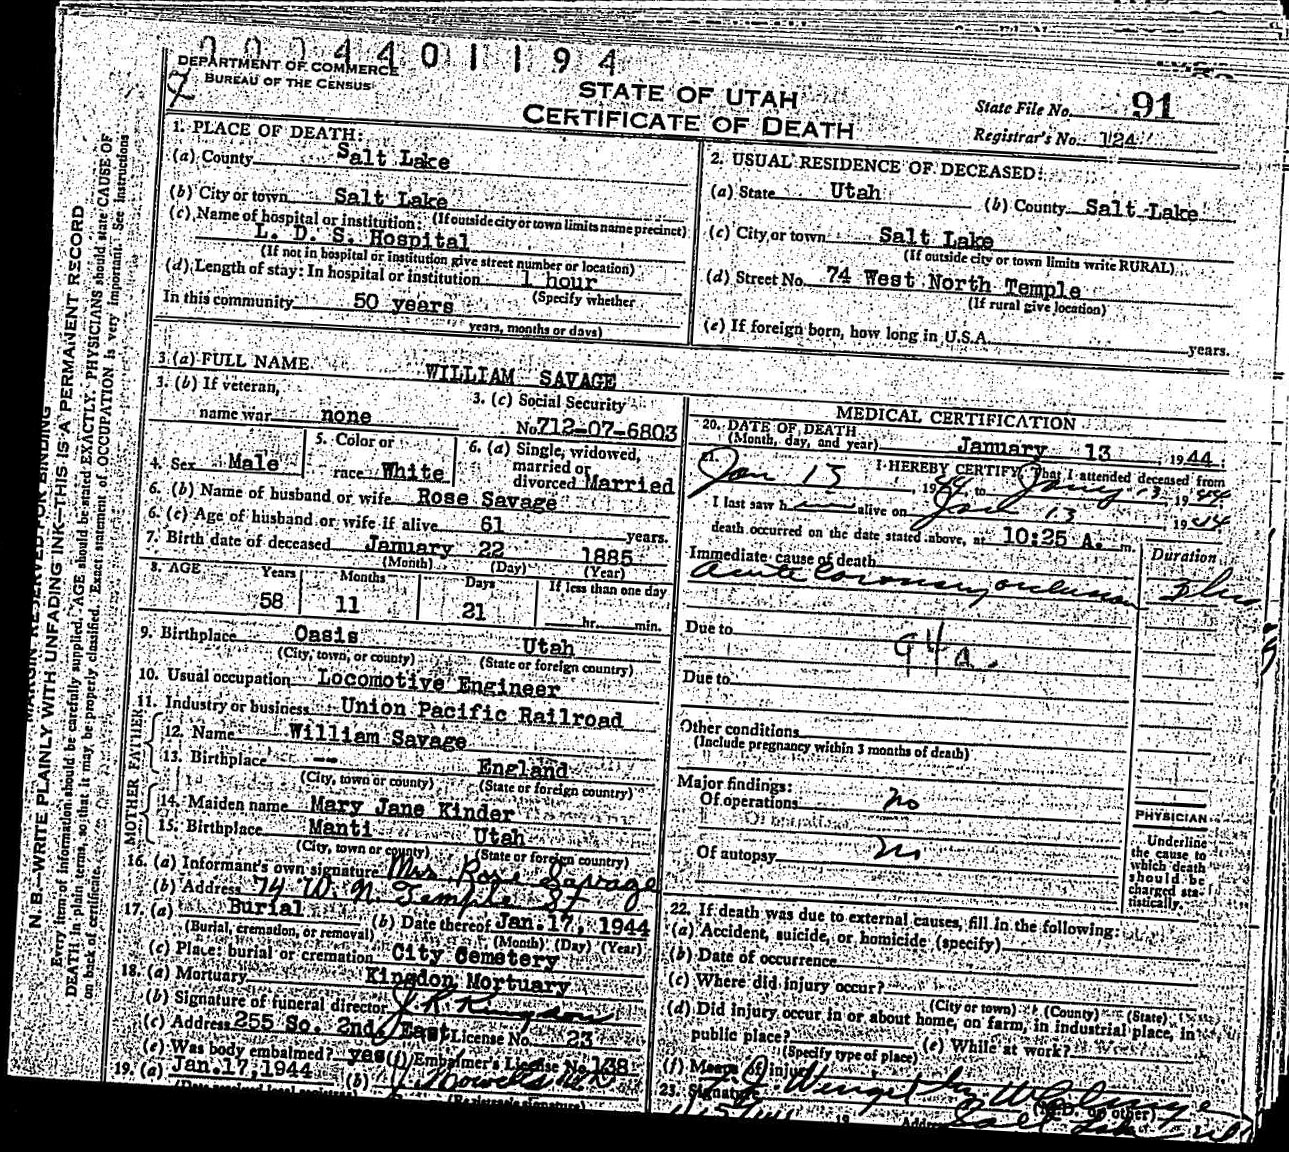 0004401194
DEPARTMENT OF COMMERCE
BUREAU OF THE CENSUS
STATE OF UTAH
CERTIFICATE OF DEATH
State File No. 91
Registrar's No. 124
N. B.—WRITE PLAINLY WITH UNFADING INK—THIS IS A PERMANENT RECORD
Every item of information should be carefully supplied. AGE should be stated EXACTLY. PHYSICIANS should state CAUSE OF
DEATH in plain terms, so that it may be properly classified. Exact statement of OCCUPATION is very important. See instructions
on back of certificate.
1. PLACE OF DEATH:
(a) County Salt Lake
(b) City or town Salt Lake
(If outside city or town limits name precinct)
(c) Name of hospital or institution:
L. D. S. Hospital
(If not in hospital or institution give street number or location)
(d) Length of stay: In hospital or institution 1 hour
(Specify whether
In this community 50 years
years, months or days)
2. USUAL RESIDENCE OF DECEASED:
(a) State Utah (b) County Salt Lake
(c) City or town Salt Lake
(If outside city or town limits write RURAL)
(d) Street No. 74 West North Temple
(If rural give location)
(e) If foreign born, how long in U.S.A. years.
3. (a) FULL NAME WILLIAM SAVAGE
3. (b) If veteran,
name war none
3. (c) Social Security
No. 712-07-6803
4. Sex Male
5. Color or
race White
6. (a) Single, widowed,
married or
divorced Married
6. (b) Name of husband or wife Rose Savage
6. (c) Age of husband or wife if alive 61 years.
7. Birth date of deceased January 22 1885
(Month) (Day) (Year)
8. AGE Years Months Days If less than one day
58 11 21 hr. min.
9. Birthplace Oasis Utah
(City, town, or county) (State or foreign country)
10. Usual occupation Locomotive Engineer
11. Industry or business Union Pacific Railroad
FATHER
12. Name William Savage
13. Birthplace -- England
(City, town or county) (State or foreign country)
MOTHER
14. Maiden name Mary Jane Kinder
15. Birthplace Manti Utah
(City, town or county) (State or foreign country)
16. (a) Informant's own signature Mrs Rose Savage
(b) Address 74 W. N. Temple St
17. (a) Burial (b) Date thereof Jan.17, 1944
(Burial, cremation, or removal) (Month) (Day) (Year)
(c) Place: burial or cremation City Cemetery
18. (a) Mortuary Kingdon Mortuary
(b) Signature of funeral director J. R. Kingdon
(c) Address 255 So. 2nd East License No. 23
(e) Was body embalmed? yes (f) Embalmer's License No. 138
19. (a) Jan.17,1944 (b)
MEDICAL CERTIFICATION
20. DATE OF DEATH
(Month, day, and year) January 13 1944
21. I HEREBY CERTIFY, That I attended deceased from
Jan 13, 1944 to Jany 13 1944
I last saw h alive on Jan 13 1944
death occurred on the date stated above, at 10:25 A. m.
Immediate cause of death Duration
Acute Coronary occlusion
Due to 94a.
Due to
Other conditions
(Include pregnancy within 3 months of death)
Major findings:
Of operations no
Of autopsy no
PHYSICIAN
Underline
the cause to
which death
should be
charged sta-
tistically.
22. If death was due to external causes, fill in the following:
(a) Accident, suicide, or homicide (specify)
(b) Date of occurrence
(c) Where did injury occur?
(City or town) (County) (State)
(d) Did injury occur in or about home, on farm, in industrial place, in
public place? (e) While at work?
(Specify type of place)
(f) Means of injury
23. Signature
(M.D. or other)
19 Address Salt Lake